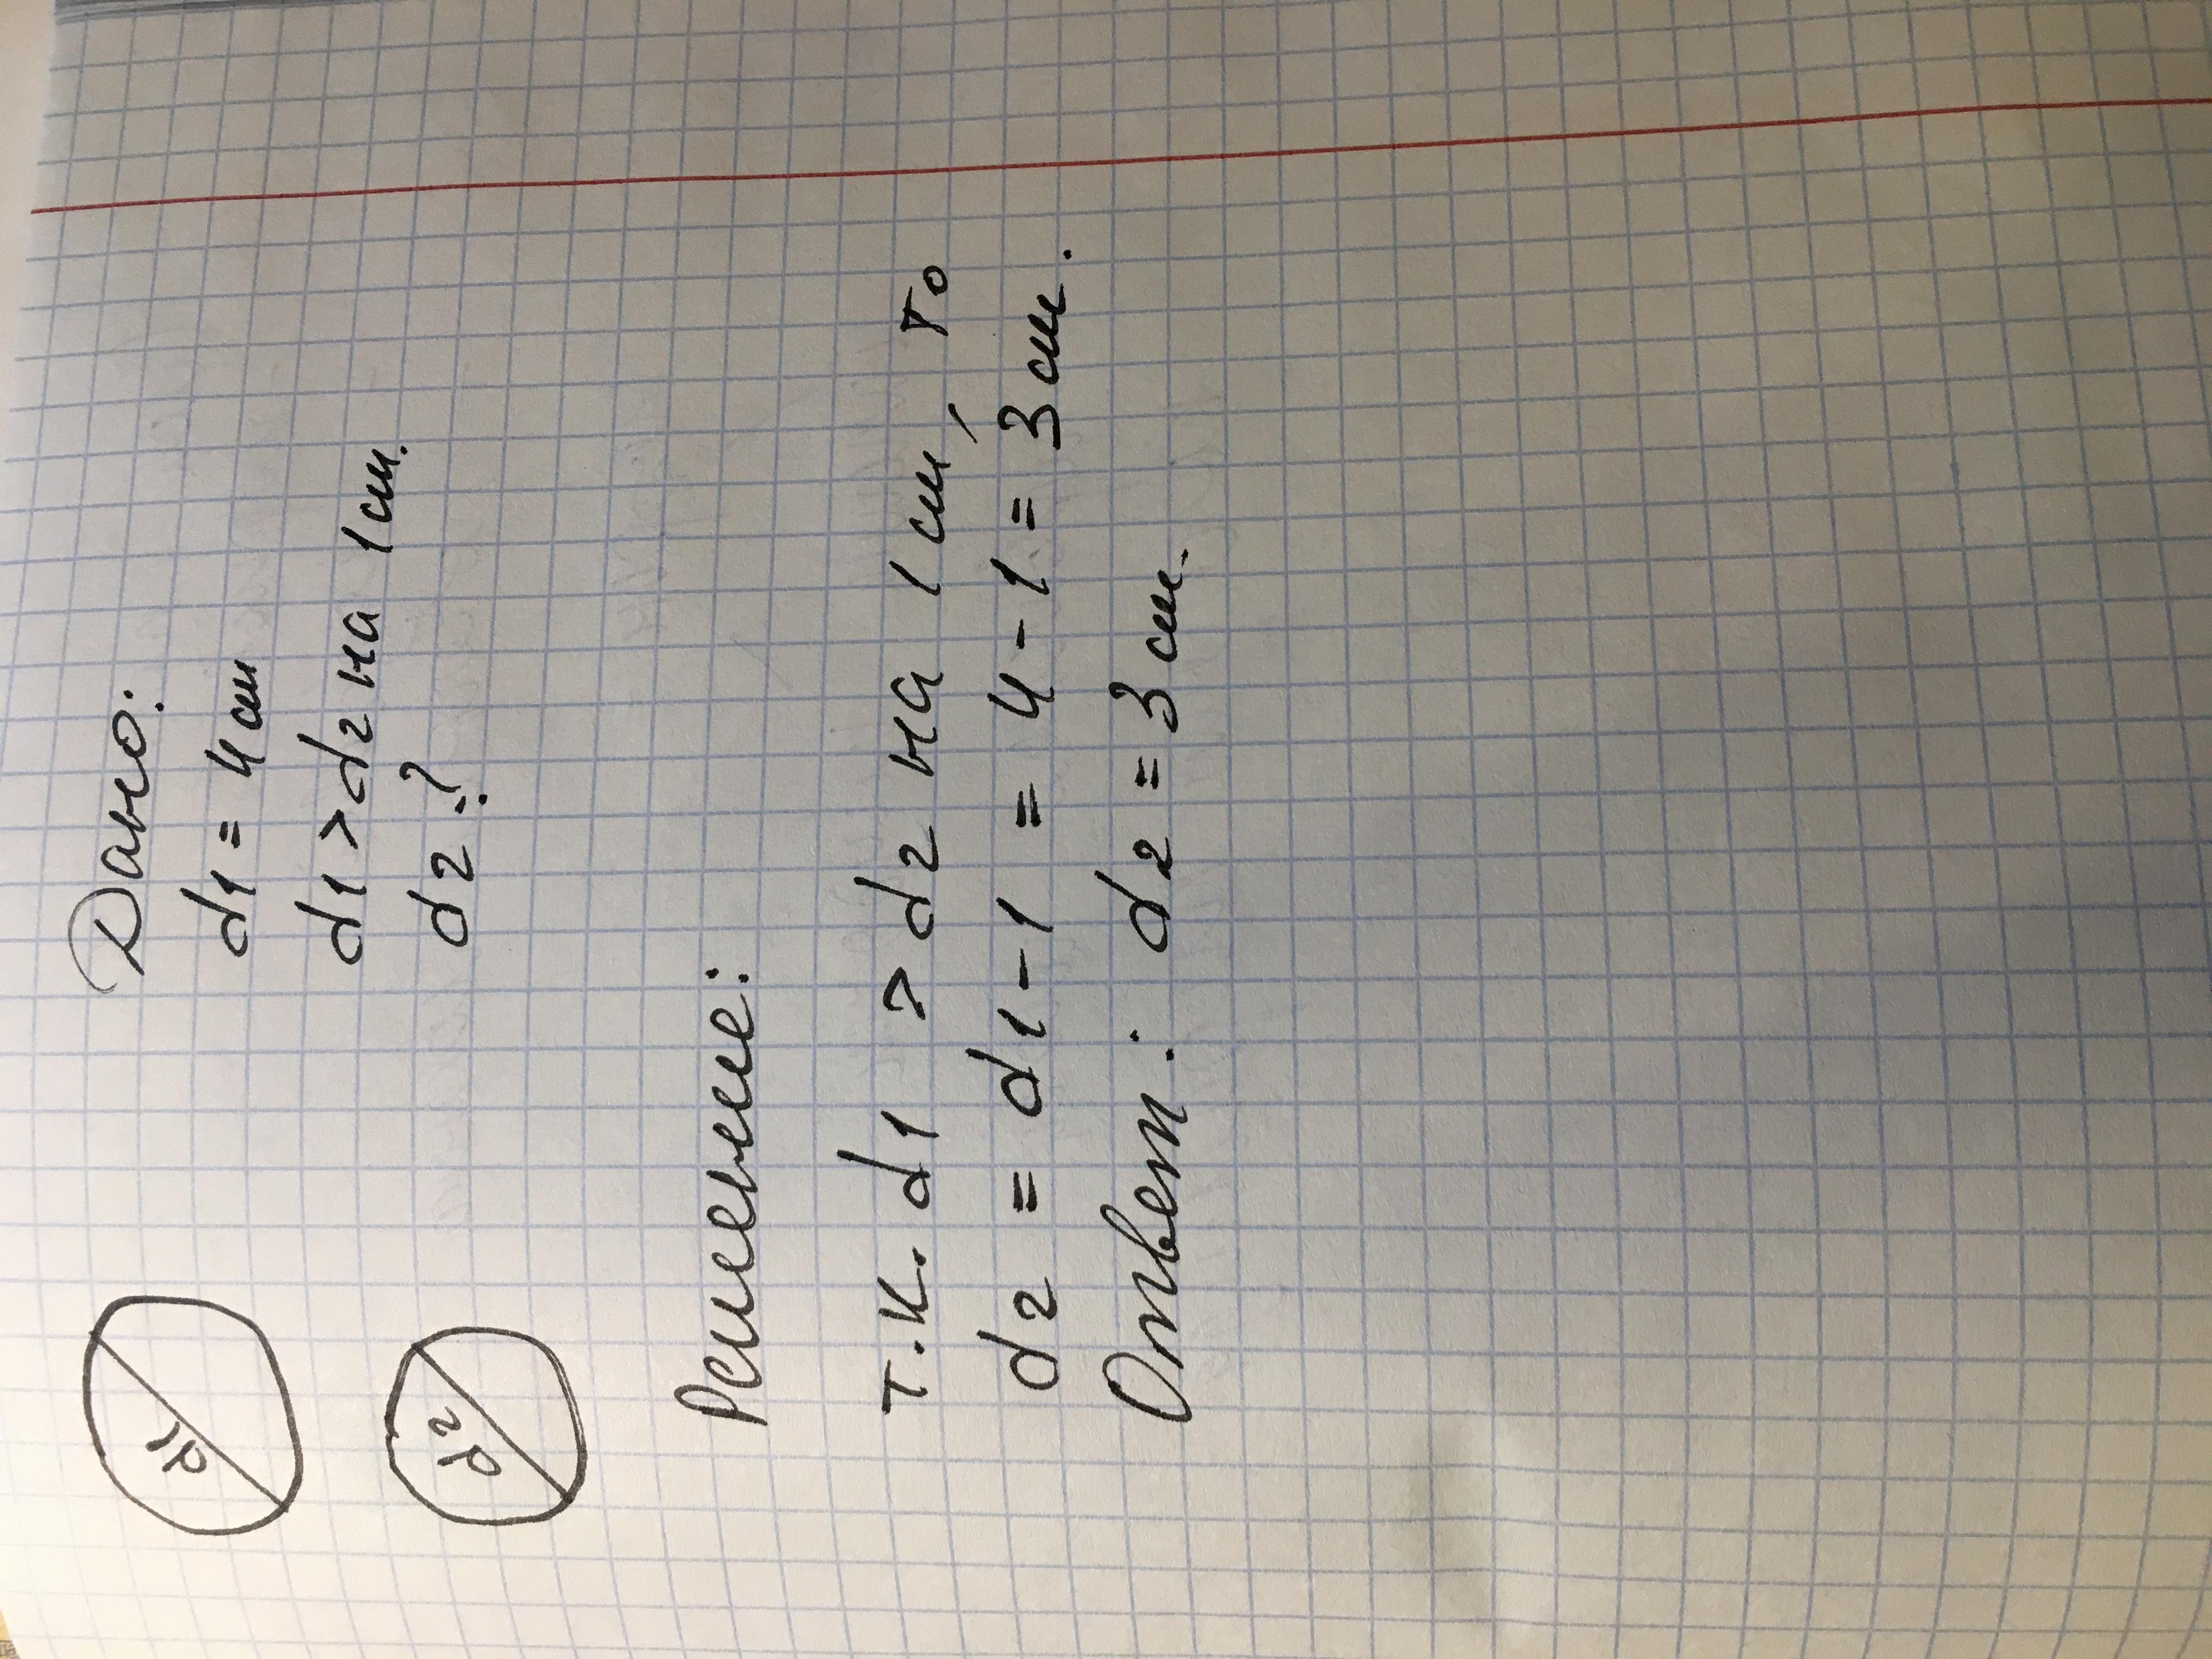 d1
d2
Дано:
d1 = 4 см
d1 > d2 на 1 см.
d2 - ?
Решение:
т.к. d1 > d2 на 1 см, то
d2 = d1 - 1 = 4 - 1 = 3 см.
Ответ: d2 = 3 см.